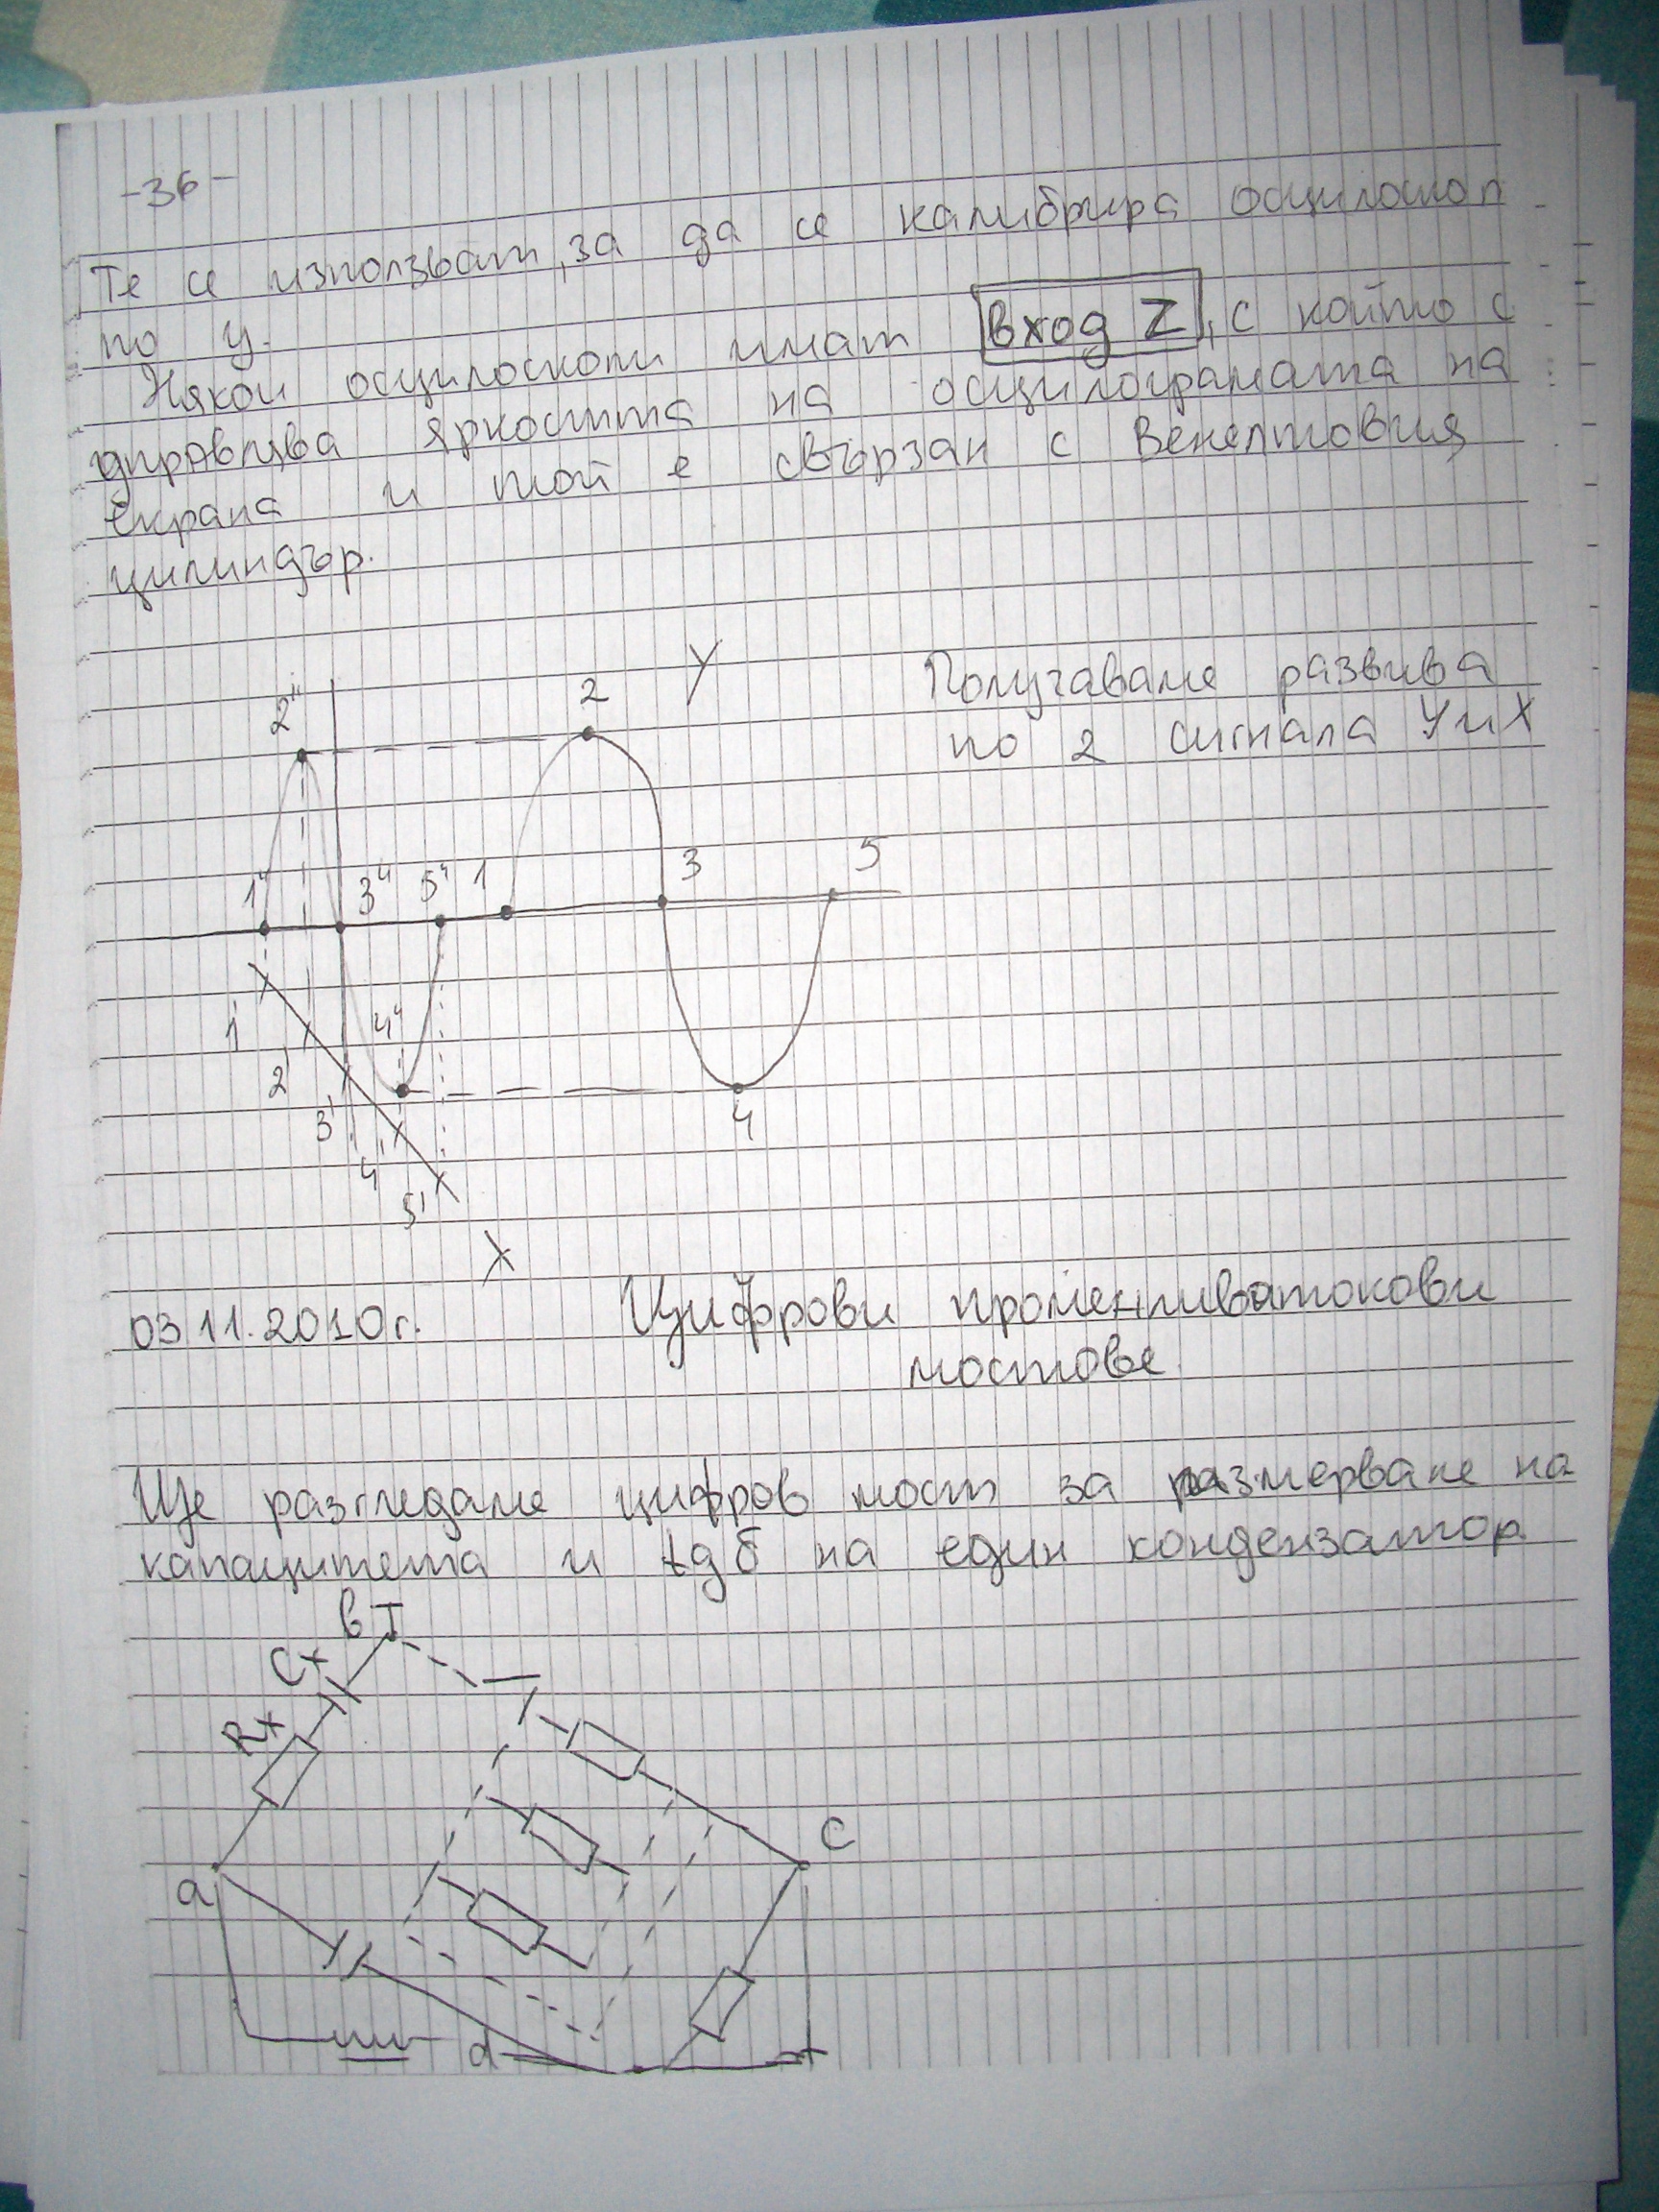 -36-
Те се използват, за да се калибрира осцилоскоп
по у.
Някои осцилоскопи имат вход Z, с който с
яркостта на осцилограмата на
екрана и той е свързан с Венелтовия
цилиндър.
Y
Получаваме развива
по 2 сигнала У и Х
2" 2
1" 3" 5" 1 3 5
1' 4"
2'
3' 4
4'
5'
X
03.11.2010г. Цифрови променливотокови
мостове
Ще разгледаме цифров мост за измерване на
капацитета и tgδ на един кондензатор
в
Cx
Rx
C
a
d